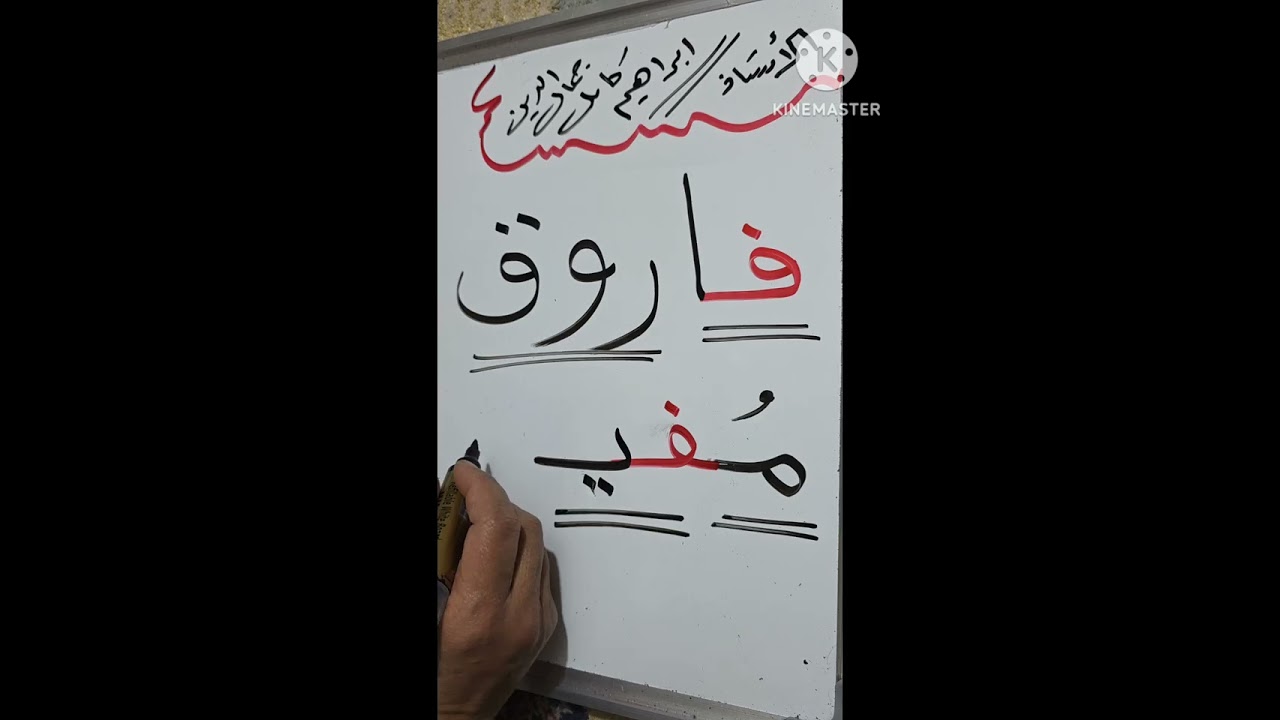 الأستاذ // ابراهيم كامل جمال الدين
KINEMASTER
فاروق
مُفيـ